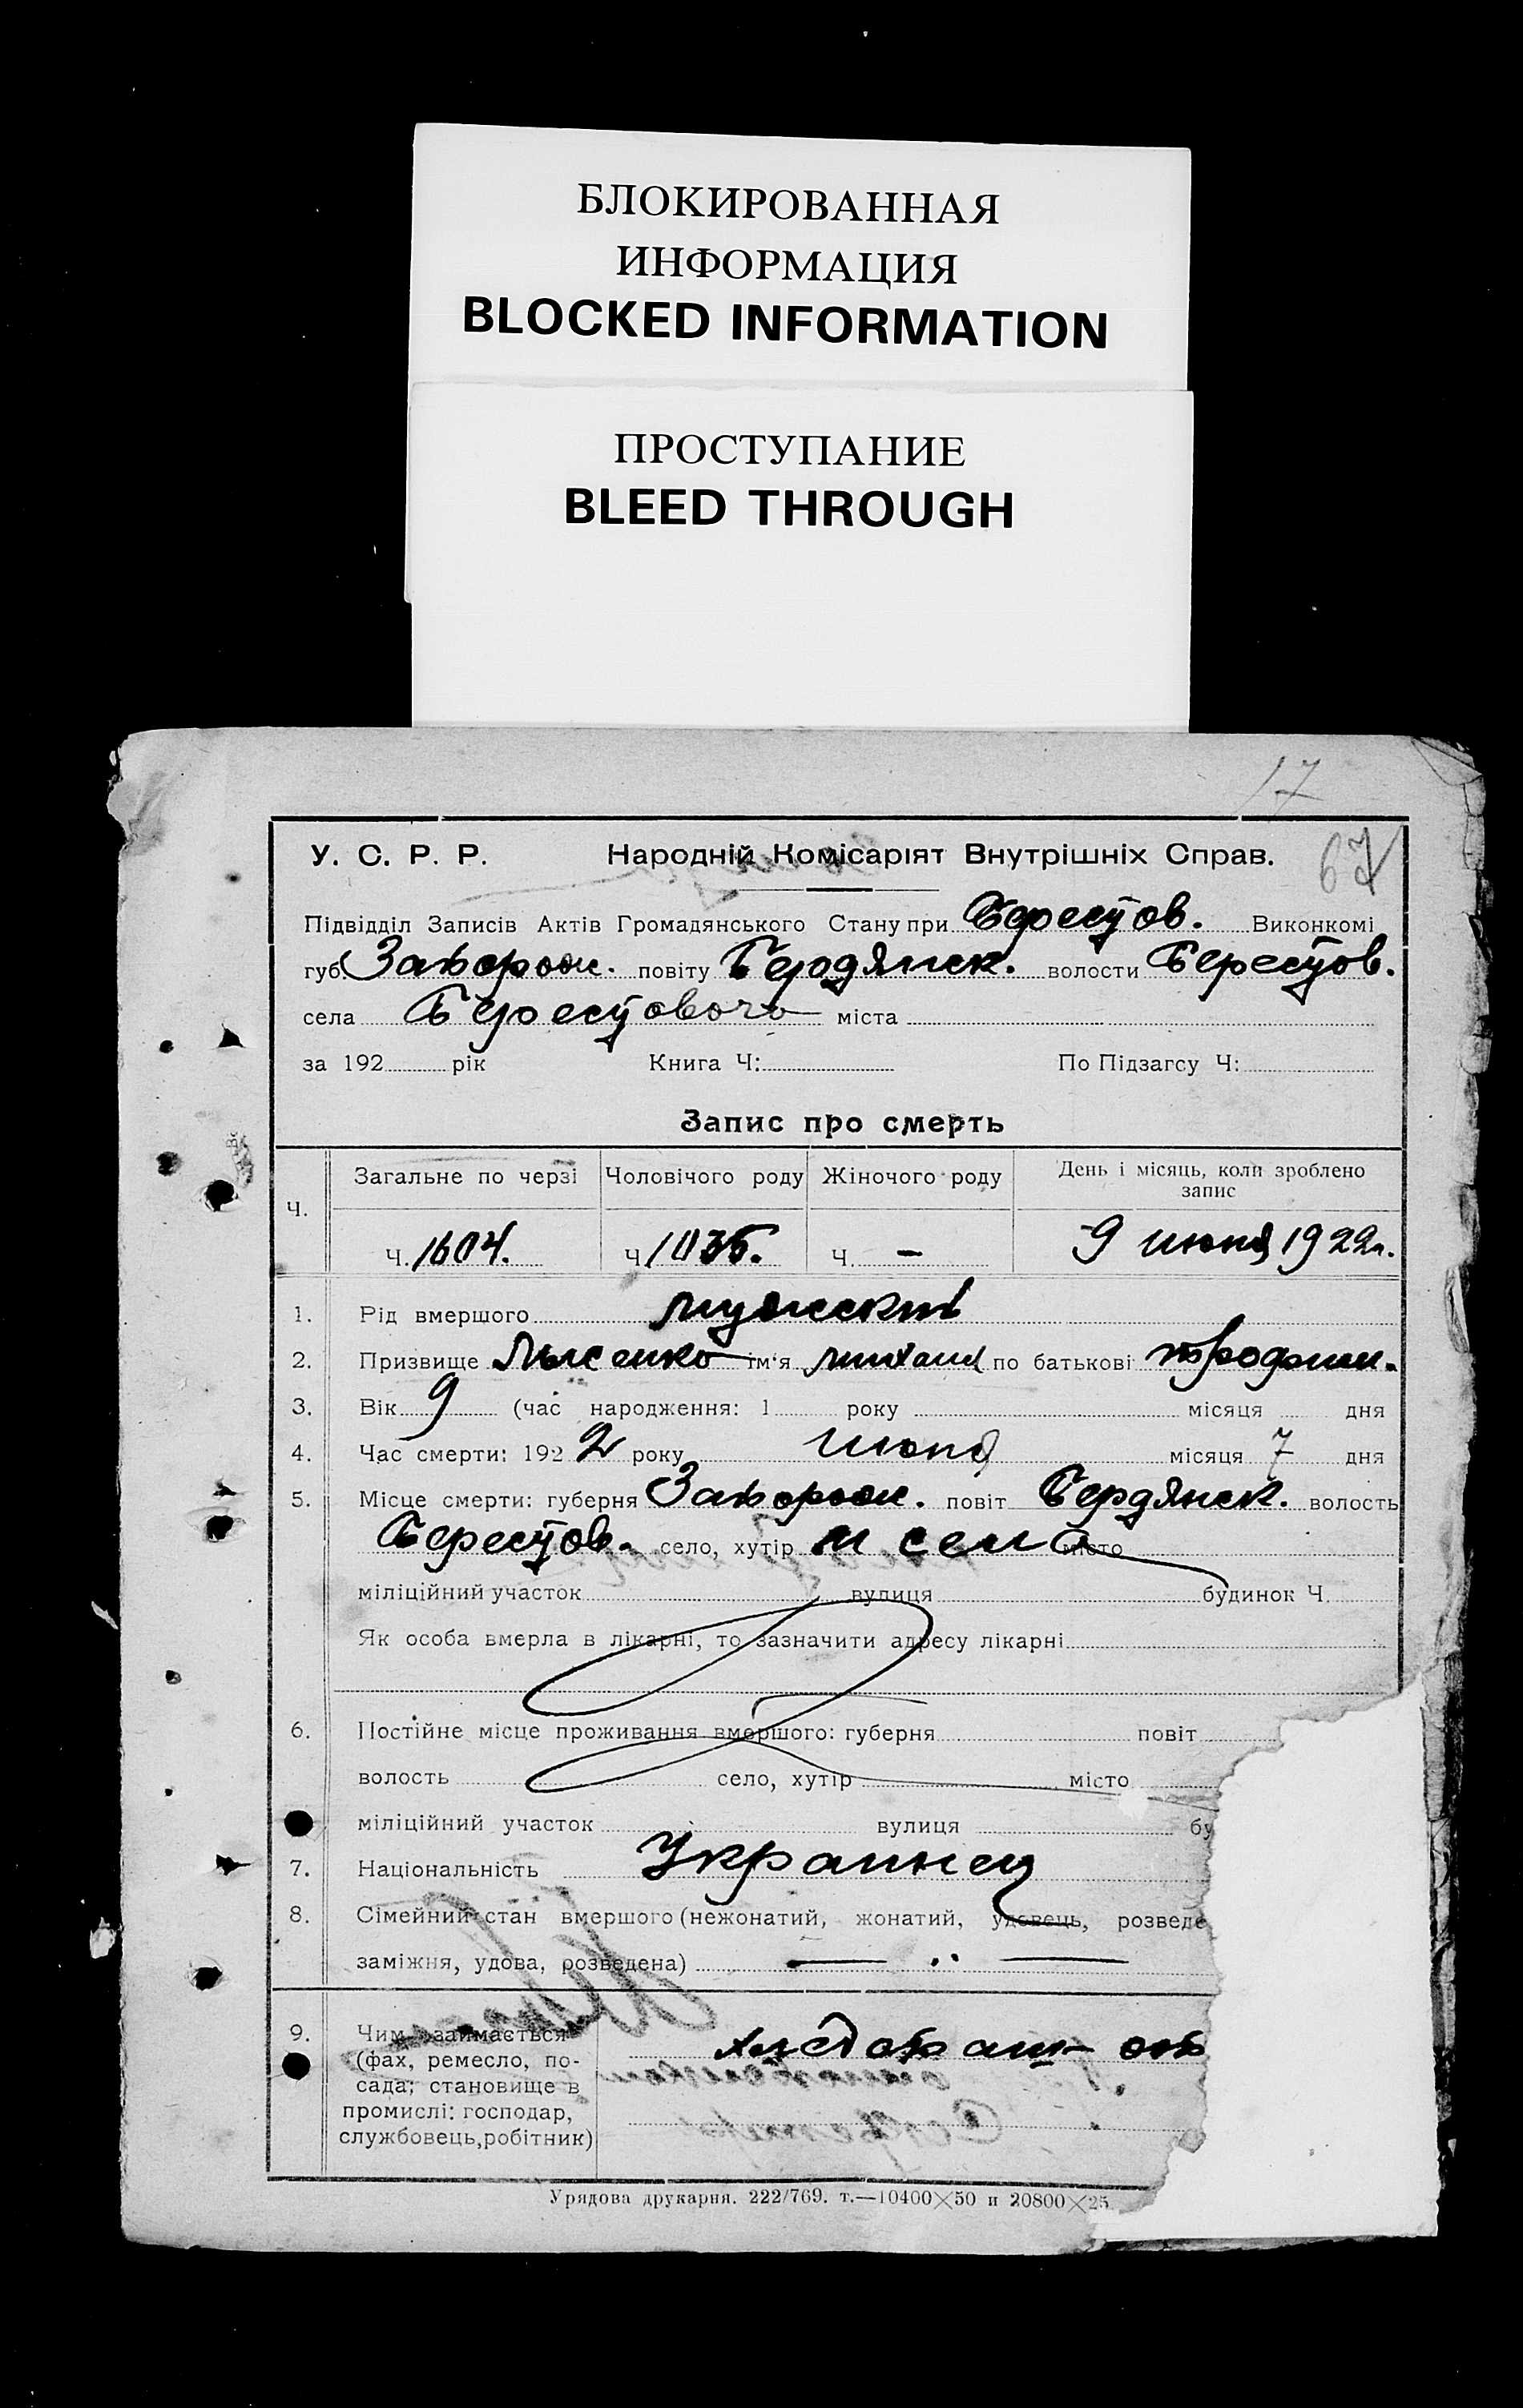 БЛОКИРОВАННАЯ
ИНФОРМАЦИЯ
BLOCKED INFORMATION
ПРОСТУПАНИЕ
BLEED THROUGH
17
67
У. С. Р. Р. Народній Комісаріят Внутрішніх Справ.
Підвідділ Записів Актів Громадянського Стану при Берестов. Виконкомі
губ. Запорож. повіту Бердянск. волости Берестов.
села Берестового міста
за 192 рік Книга Ч: По Підзагсу Ч:
Запис про смерть
Ч. Загальне по черзі Чоловічого роду Жіночого роду День і місяць, коли зроблено
запис
Ч. 1604. Ч. 1035. Ч. — 9 июня 1922г.
1. Рід вмершого мужский
2. Призвище Лысенко ім'я михаил по батькові трофим.
3. Вік 9 (час народження: 1 року місяця дня
4. Час смерти: 1922 року июня місяця 7 дня
5. Місце смерти: губерня Запорож. повіт Бердянск. волость
Берестов. село, хутір м села місто
міліційний участок вулиця будинок Ч.
Як особа вмерла в лікарні, то зазначити адресу лікарні
6. Постійне місце проживання вмершого: губерня повіт
волость село, хутір місто
міліційний участок вулиця бу
7. Національність Украинец
8. Сімейний стан вмершого (нежонатий, жонатий, удовець, розведе
заміжня, удова, розведена) — „ —
9. Чим займається
(фах, ремесло, по-
сада; становище в
промислі: господар,
службовець, робітник)
хлебопаш
Урядова друкарня. 222/769. т.—10400×50 и 20800×25